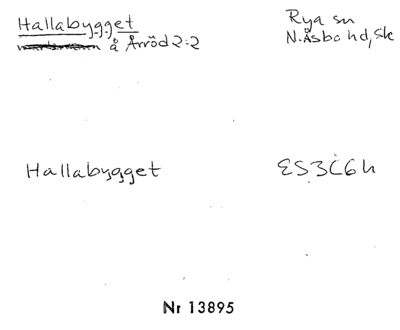 Hallabygget
å Årröd 2:2
Rya sn
N. Åsbo hd, Sk
Hallabygget
ES3C6h
Nr 13895